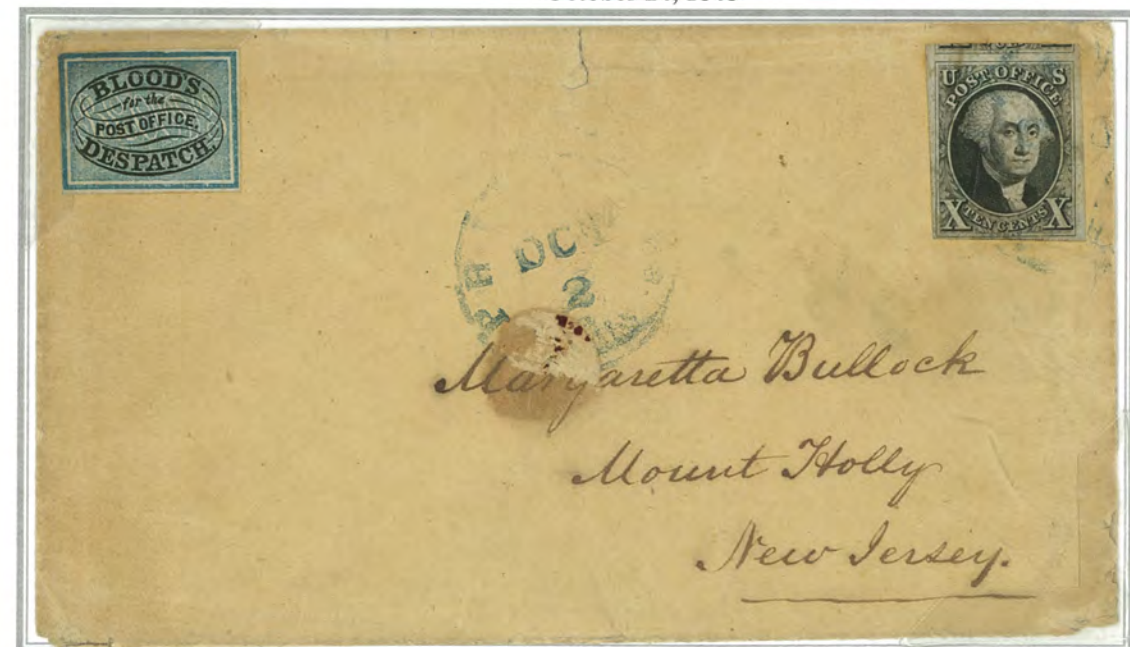 BLOOD'S
for the
POST OFFICE.
DESPATCH.
U S
POST OFFICE
X X
TEN CENTS
OCT
2
Margaretta Bullock
Mount Holly
New Jersey.